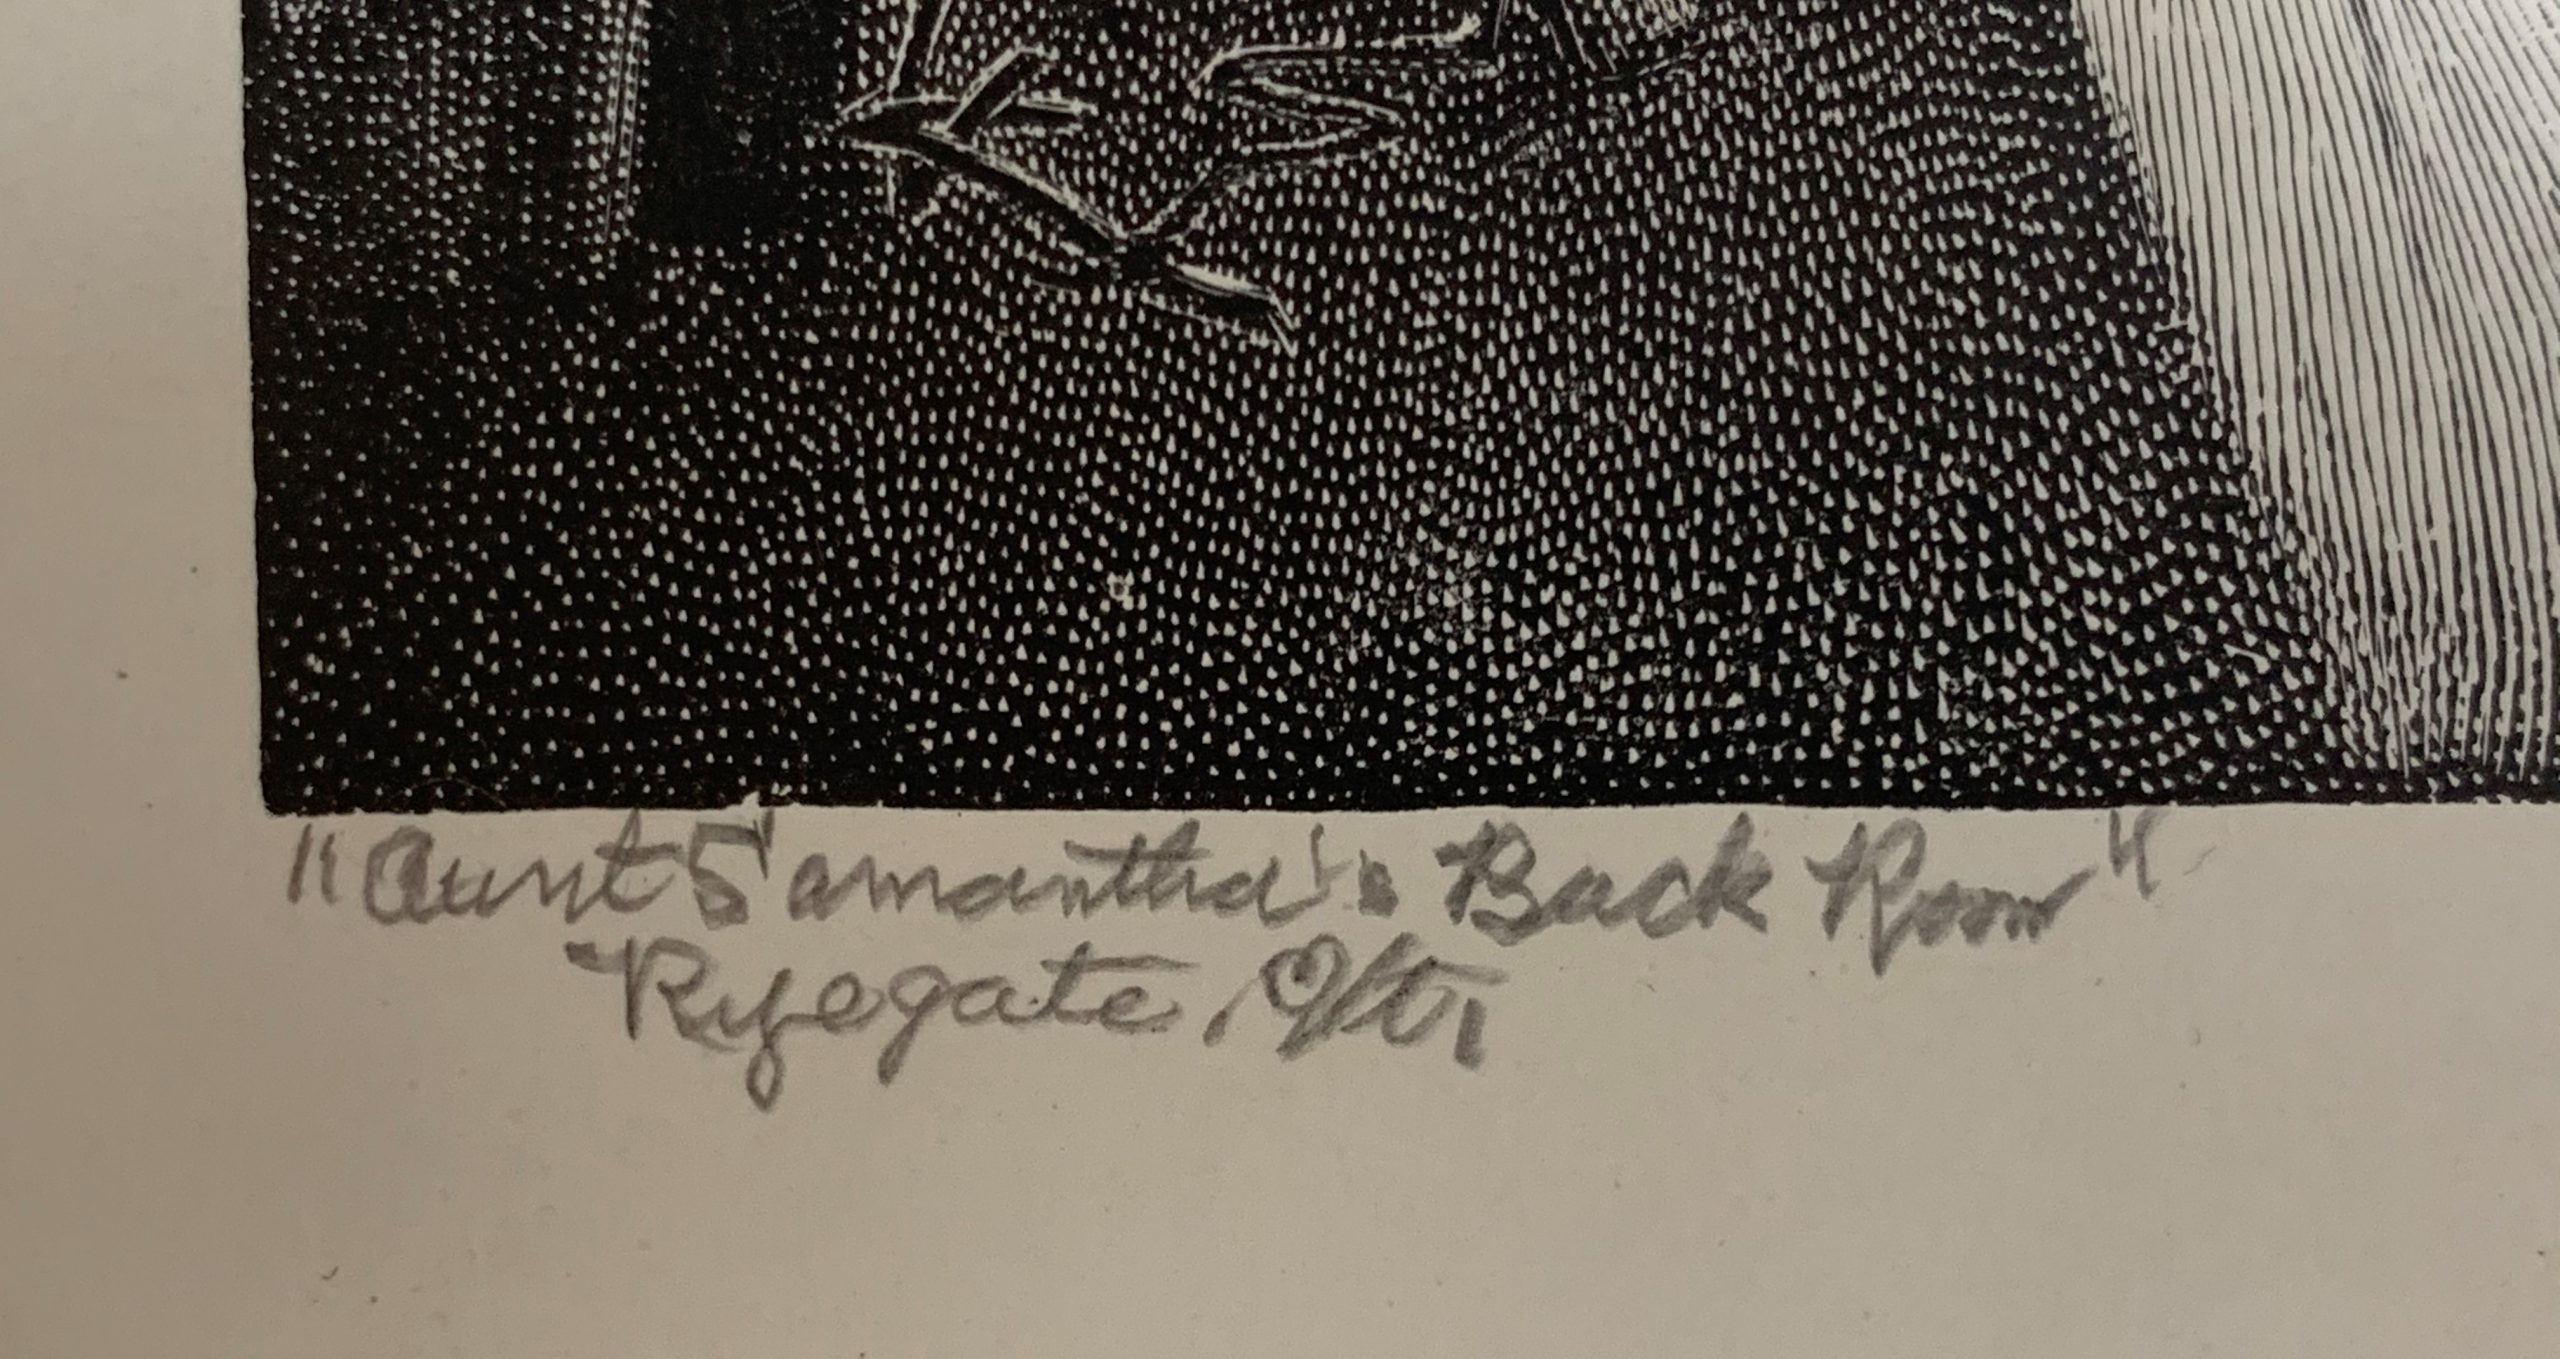 "Aunt Samantha's Back Room"
Ryegate, Vt.